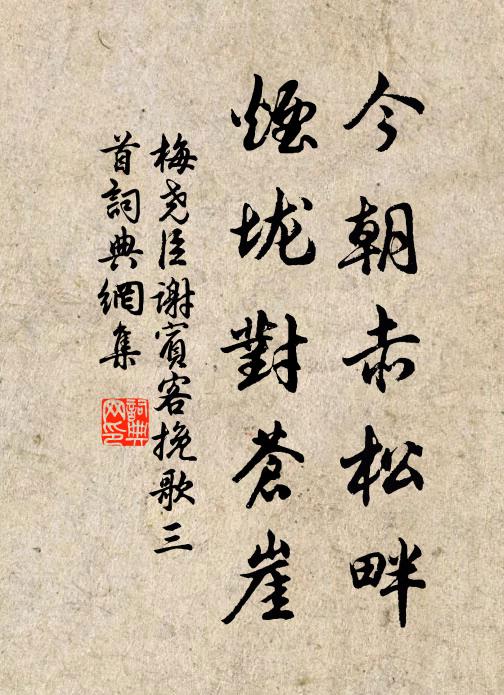 今朝赤松畔
煙垅對蒼崖
梅尧臣謝賓客挽歌三
首詞典網集
詞典
网印